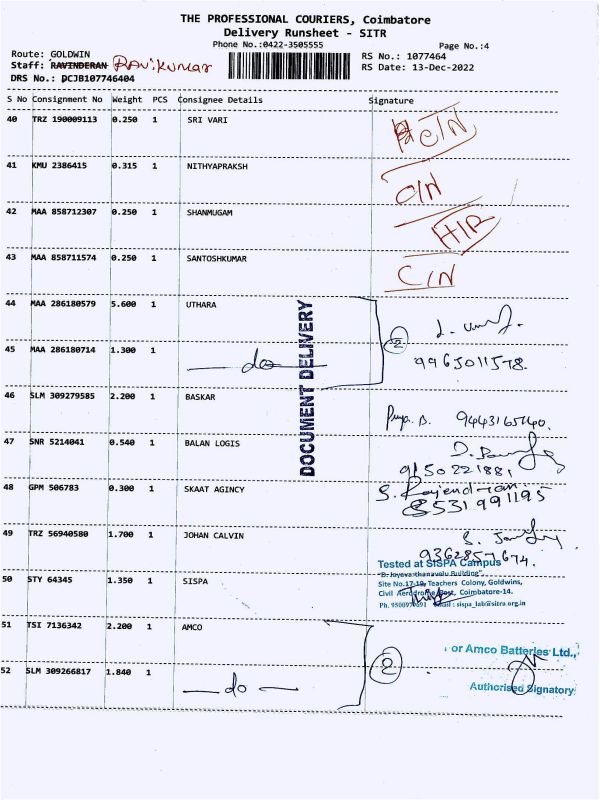 THE PROFESSIONAL COURIERS, Coimbatore
Delivery Runsheet - SITR
Phone No.:0422-3505555 Page No.:4
Route: GOLDWIN RS No.: 1077464
Staff: RAVINDERAN Ravikumar RS Date: 13-Dec-2022
DRS No.: DCJB107746404
S No Consignment No Weight PCS Consignee Details Signature
40 TRZ 190009113 0.250 1 SRI VARI C/N
41 KMU 2386415 0.315 1 NITHYAPRAKSH C/N
42 MAA 858712307 0.250 1 SHANMUGAM
43 MAA 858711574 0.250 1 SANTOSHKUMAR C/N
44 MAA 286180579 5.600 1 UTHARA
45 MAA 286180714 1.300 1 do 2 9965011578.
DOCUMENT DELIVERY
46 SLM 309279585 2.200 1 BASKAR 9443165740.
47 SNR 5214041 0.540 1 BALAN LOGIS 9150221881
48 GPM 506783 0.300 1 SKAAT AGINCY S. Rajendran 8531991195
49 TRZ 56940580 1.700 1 JOHAN CALVIN 9362857674.
50 STY 64345 1.350 1 SISPA
Tested at SISPA Campus
Site No.17-19, Teachers Colony, Goldwins,
Civil Aerodrome Post, Coimbatore-14.
Email : sispa_lab@sitra.org.in
51 TSI 7136342 2.200 1 AMCO
or Amco Batteries Ltd.,
52 SLM 309266817 1.840 1 do 2
Authorised Signatory